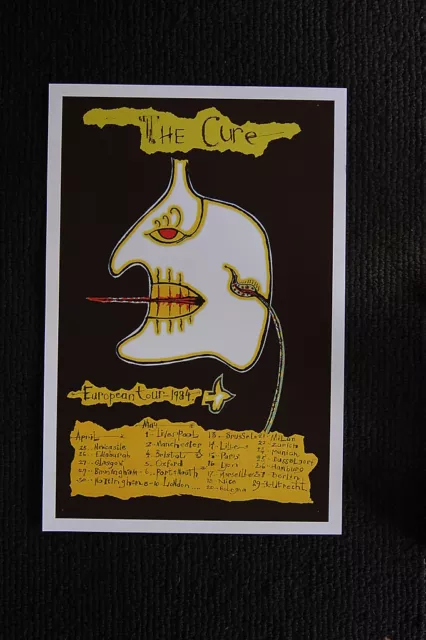 THE CURE
European tour - 1984
April
25 Newcastle
26 Edinburgh
27 Glasgow
29 Birmingham
30
May
1 Liverpool
2 Manchester
4 Bristol
5 Oxford
6 Portsmouth
8-10 London
13 Brussels
14 Lille
15 Paris
16 Lyon
17 Marseilles
Nice
Bologna
21 Milan
Zurich
24 Munich
25 Dusseldorf
26 Hamburg
27 Berlin
29 Utrecht